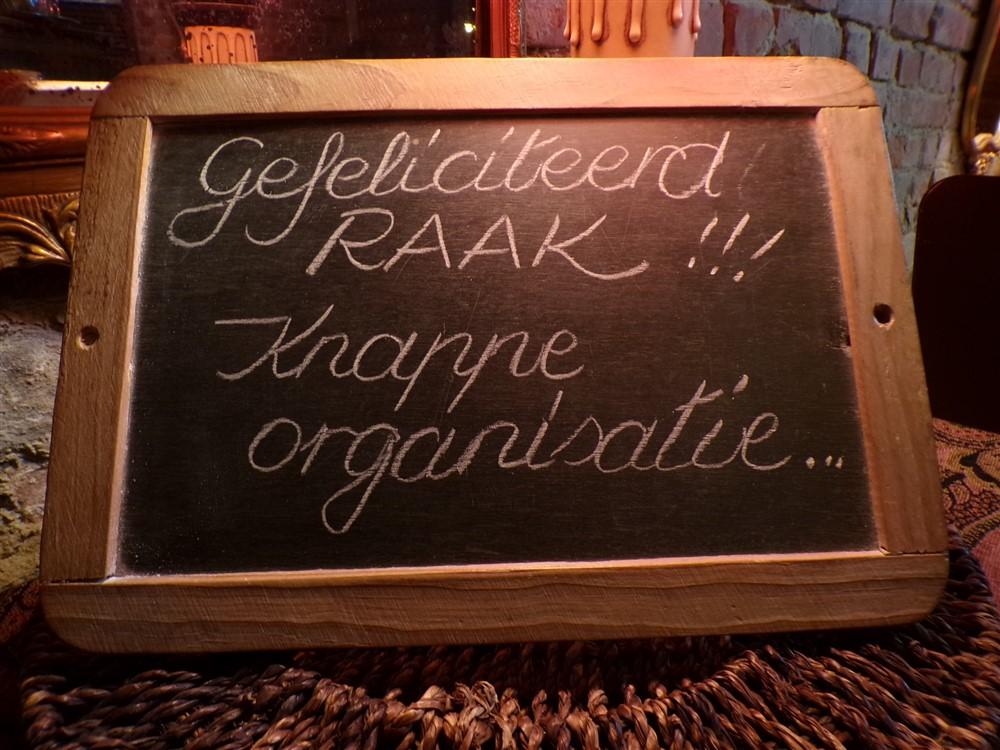 Gefeliciteerd
RAAK !!!
Knappe
organisatie...